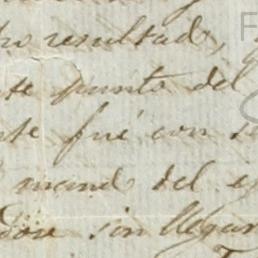 su resultado,
te punto del
nte fué con se
mand del e
dose sin llegar